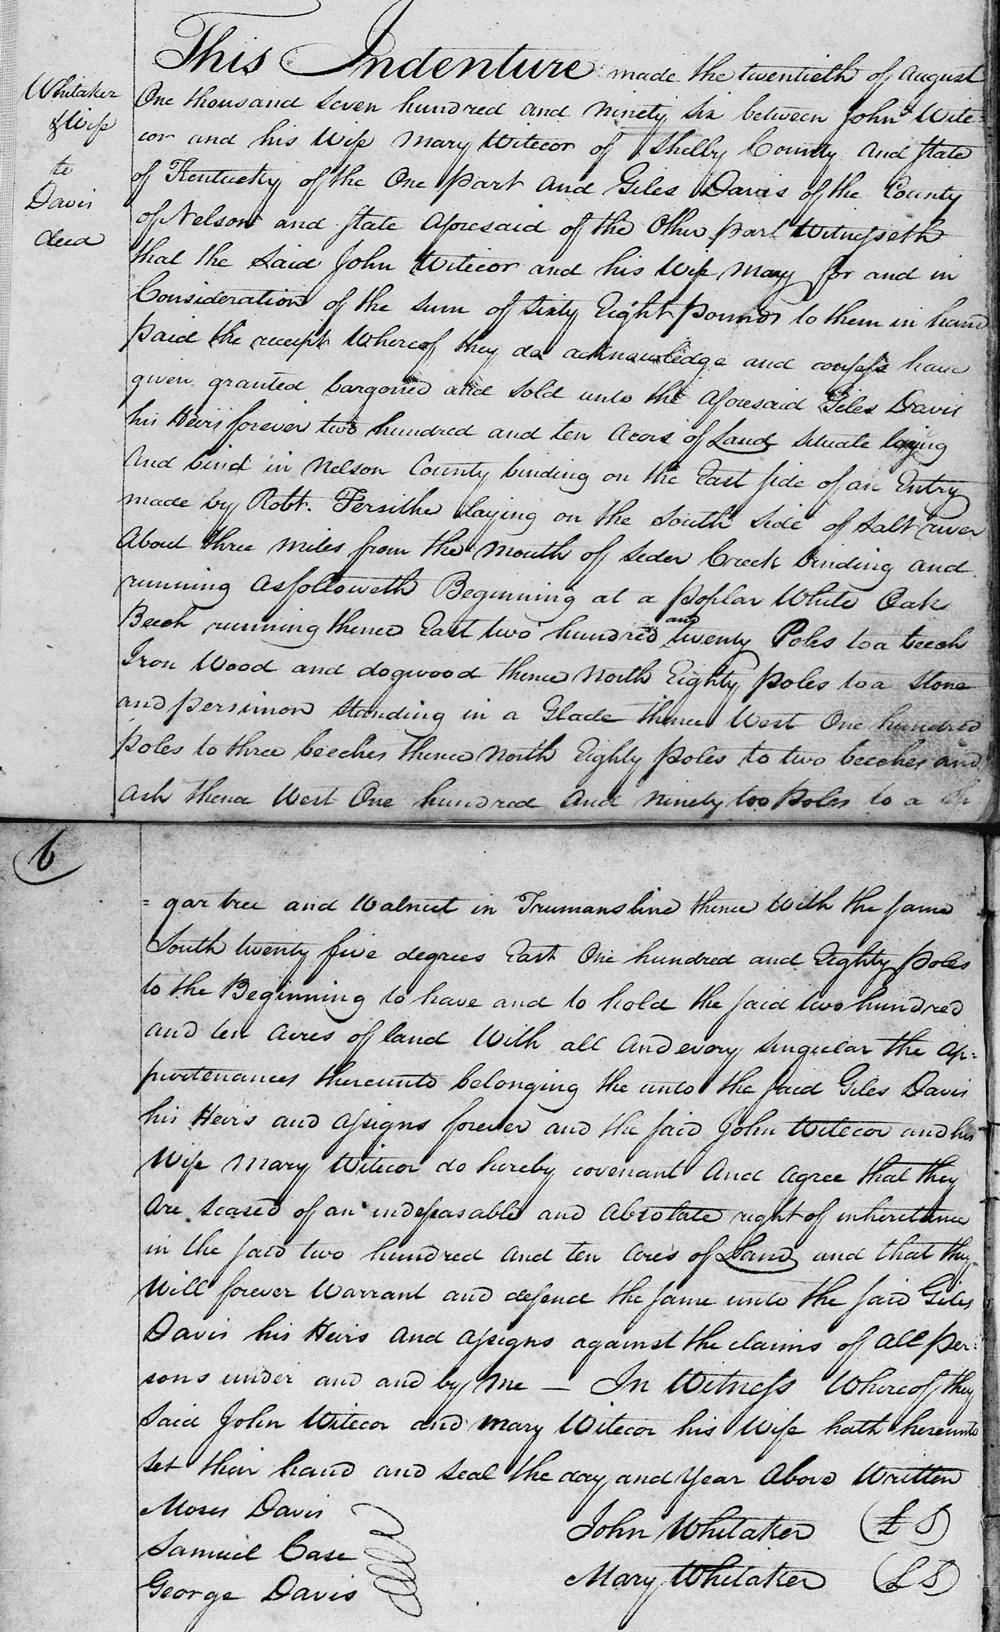 Whitaker
& Wife
to
Davis
deed
This Indenture made the twentieth of August
One thousand Seven hundred and ninety six between John Wite=
cor and his Wife Mary Witecor of Shelby County and State
of Kentucky of the One part and Giles Davis of the County
of Nelson and State Aforesaid of the Other part Witnesseth
that the Said John Witecor and his Wife Mary for and in
Consideration of the Sum of Sixty Eight pounds to them in hand
paid the receipt Whereof they do acknowledge and confess have
given granted bargoned and Sold unto the Aforesaid Giles Davis
his Heirs forever two hundred and ten Acors of Land Situate laying
And bind in Nelson County binding on the East Side of an Entry
made by Robt. Fersithe laying on the South Side of Salt river
About three miles from the Mouth of Seder Creek binding and
running as followeth Beginning at a poplar White Oak
Beech running thence East two hundred and twenty Poles to a beech
Iron Wood and dogwood thence North Eighty poles to a Stone
and persimon Standing in a Glade thence West One hundred
poles to three beeches thence North Eighty poles to two beeches and
Ash thence West One hundred And ninety too poles to a
6
= gar tree and Walnut in Trumans line thence With the Same
South twenty five degrees East One hundred and Eighty poles
to the Beginning to have and to hold the Said two hundred
and ten Acres of land With all And every Singular the Ap=
purtenances thereunto belonging the unto the Said Giles Davis
his Heirs and Assigns forever and the Said John Witecor and his
Wife Mary Witecor do hereby covenant And Agree that they
Are Seased of an indefeasable and Absolate right of inheritance
in the Said two hundred And ten Acres of Land and that they
Will forever Warrant and defend the Same unto the Said Giles
Davis his Heirs And Assigns against the claims of All per=
sons under and and by Me — In Witness Whereof they
Said John Witecor and Mary Witecor his Wife hath hereunto
Set their hand and Seal the day and Year Above Written
Moses Davis
Samuel Case
George Davis
John Whitaker (L S)
Mary Whitaker (L S)